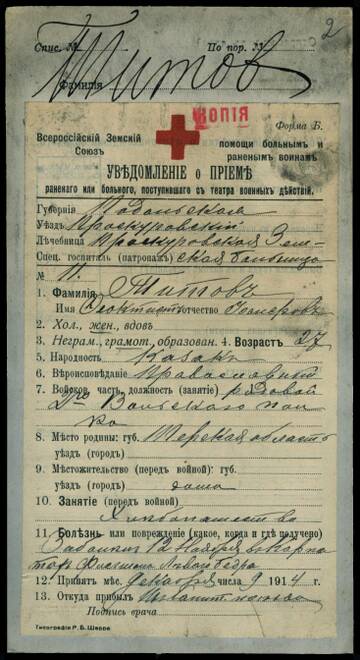 2
Спис. № По пор. №
Титов
Фамилия
КОПІЯ
Форма Б.
Всероссійскій Земскій Союзъ
помощи больнымъ и раненымъ воинамъ
УВѢДОМЛЕНІЕ о ПРІЕМѢ
раненаго или больного, поступившаго съ театра военныхъ дѣйствій.
Губернія Подольская
Уѣздъ Проскуровскій
Лѣчебница Проскуровская Зем-
Спец. госпиталь (патронаж.) ская больница
№
1. Фамилія Титовъ
Имя Феоктистъ отчество
2. Хол., жен., вдовъ
3. Неграм., грамот., образован. 4. Возрастъ 27
5. Народность Казакъ
6. Вѣроисповѣданіе Православный
7. Войсков. часть, должность (занятіе) рядовой
2го Волгскаго пол
ка
8. Мѣсто родины: губ. Терская область
уѣздъ (городъ)
9. Мѣстожительство (передъ войной): губ.
уѣздъ (городъ) дома
10. Занятіе (передъ войной)
Хлѣбопашество
11. Болѣзнь или поврежденіе (какое, когда и гдѣ получено)
12 Ноября
Лѣваго бедра
12. Принятъ мѣс. декабря числа 9 1914
13. Откуда прибылъ
Подпись врача
Типографія Р. Б. Шерра